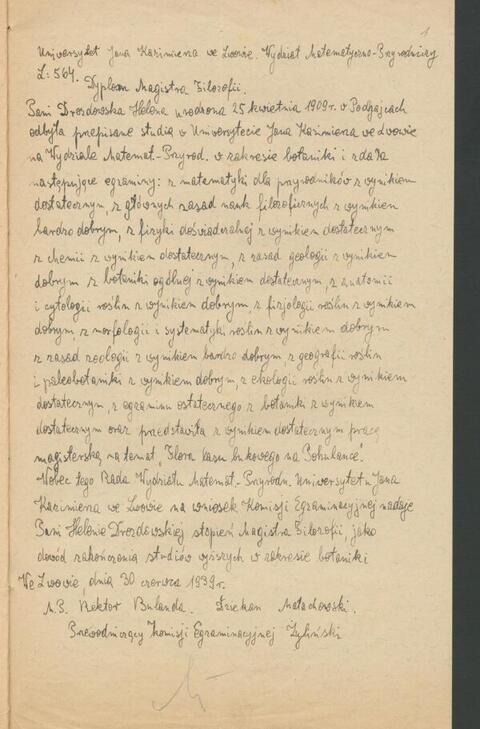 1
Uniwersytet Jana Kazimierza we Lwowie. Wydział Matematyczno-Przyrodniczy
L: 564.
Dyplom Magistra Filozofii.
Pani Drozdowska Helena urodzona 25 kwietnia 1909 r. w Podhajcach
odbyła przepisane studia w Uniwersytecie Jana Kazimierza we Lwowie
na Wydziale Matemat.-Przyrod. w zakresie botaniki i zdała
następujące egzaminy: z matematyki dla przyrodników z wynikiem
dostatecznym, z głównych zasad nauk filozoficznych z wynikiem
bardzo dobrym, z fizyki doświadczalnej z wynikiem dostatecznym
z chemii z wynikiem dostatecznym, z zasad geologii z wynikiem
dobrym z botaniki ogólnej z wynikiem dostatecznym, z anatomii
i cytologii roślin z wynikiem dobrym, z fizjologii roślin z wynikiem
dobrym, z morfologii i systematyki roślin z wynikiem dobrym
z zasad zoologii z wynikiem bardzo dobrym, z geografii roślin
i paleobotaniki z wynikiem dobrym, z ekologii roślin z wynikiem
dostatecznym, z egzaminu ostatecznego z botaniki z wynikiem
dostatecznym oraz przedstawiła z wynikiem dostatecznym pracę
magisterską na temat "Flora lasu bukowego na Pohulance".
Wobec tego Rada Wydziału Matemat.-Przyrodn. Uniwersytetu Jana
Kazimierza we Lwowie na wniosek Komisji Egzaminacyjnej nadaje
Pani Helenie Drozdowskiej stopień Magistra Filozofii, jako
dowód zakończenia studiów wyższych w zakresie botaniki
We Lwowie dnia 30 czerwca 1939 r.
Rektor Bulanda. Dziekan Małachowski.
Przewodniczący Komisji Egzaminacyjnej Żyliński